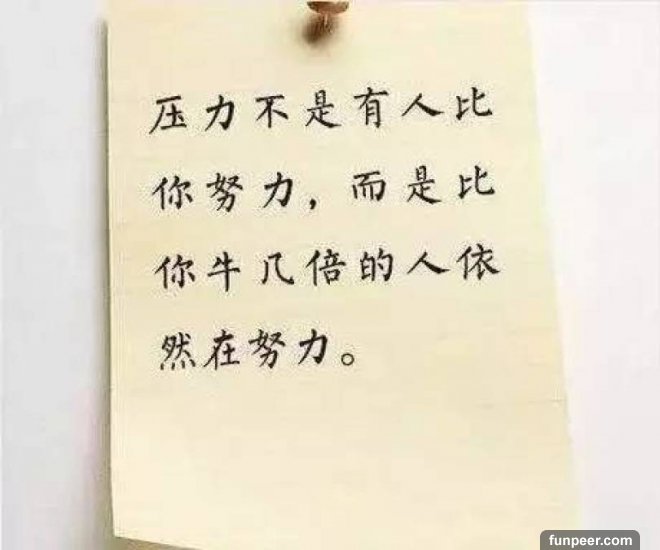 压力不是有人比
你努力，而是比
你牛几倍的人依
然在努力。
funpeer.com